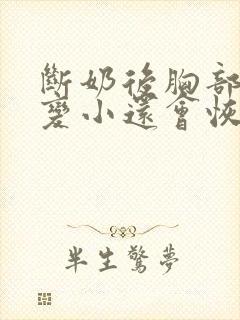 斷奶後胸部
變小還會恢
半生驚夢